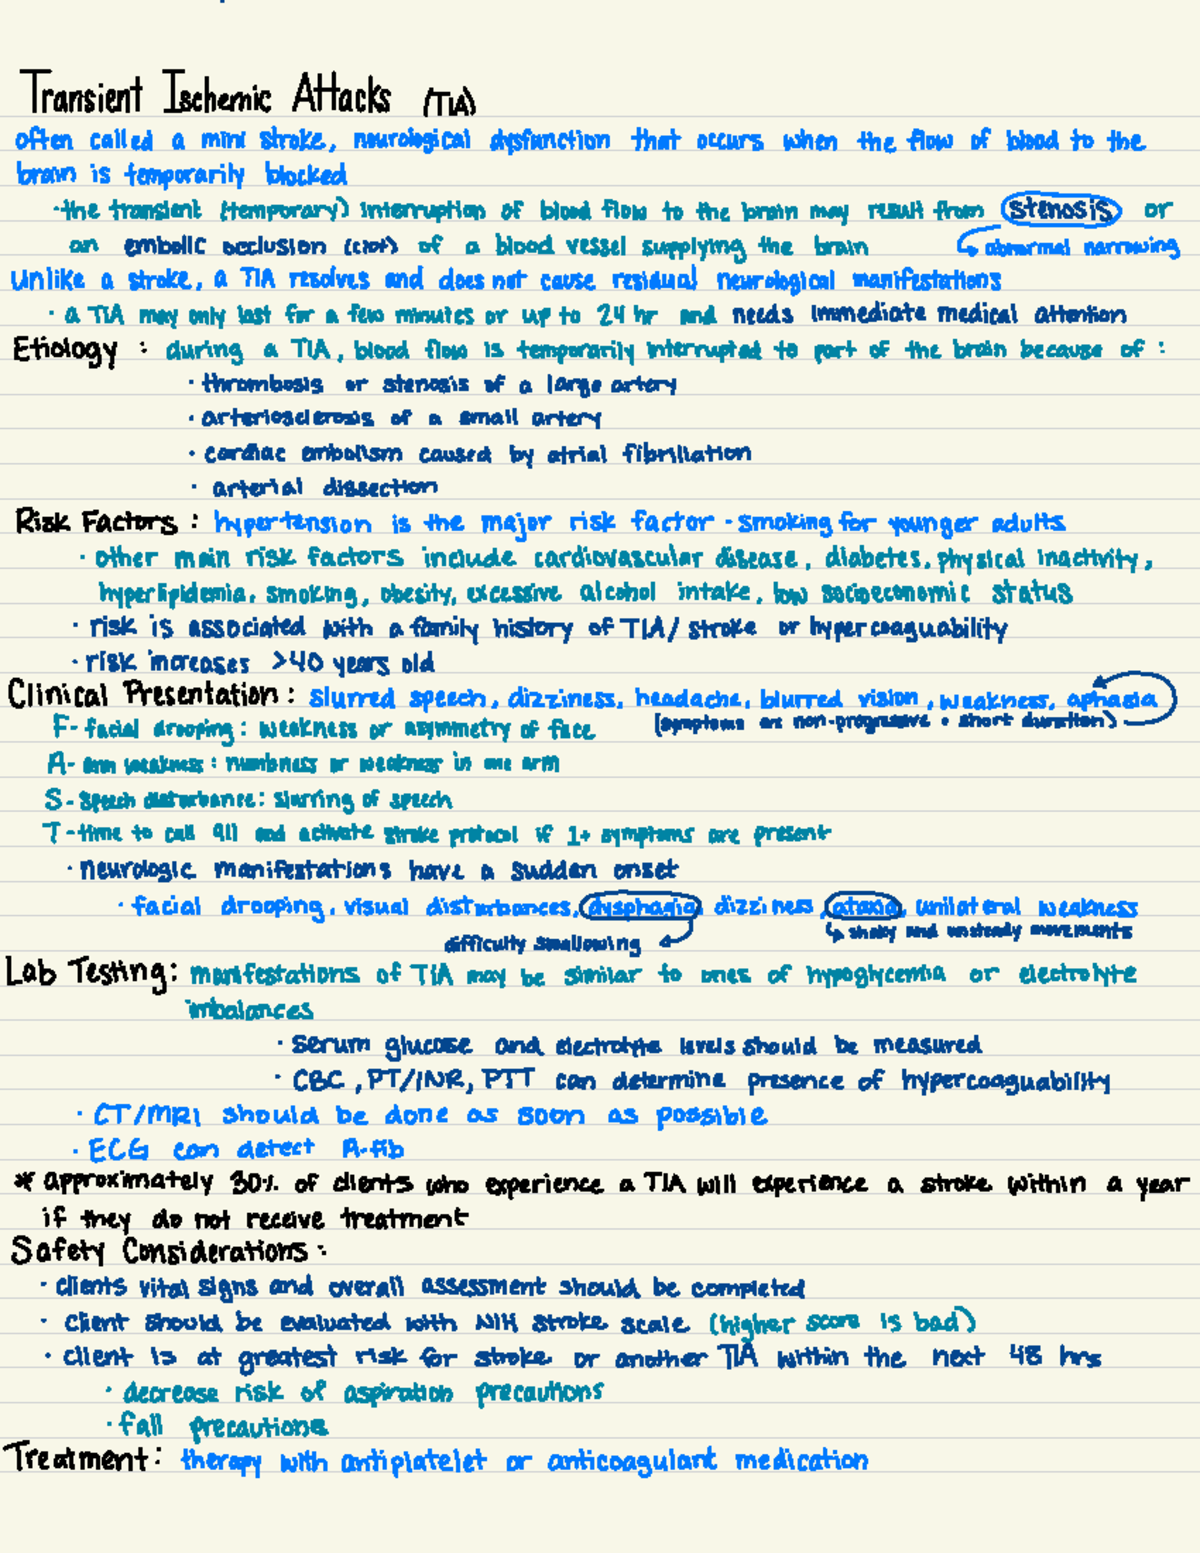 Transient Ischemic Attacks (TIA)
often called a mini stroke, neurological dysfunction that occurs when the flow of blood to the
brain is temporarily blocked
·the transient (temporary) interruption of blood flow to the brain may result from stenosis or
an embolic occlusion (clot) of a blood vessel supplying the brain
abnormal narrowing
Unlike a stroke, a TIA resolves and does not cause residual neurological manifestations
· a TIA may only last for a few minutes or up to 24 hr and needs immediate medical attention
Etiology : during a TIA, blood flow is temporarily interrupted to part of the brain because of :
· thrombosis or stenosis of a large artery
· arteriosclerosis of a small artery
· cardiac embolism caused by atrial fibrillation
· arterial dissection
Risk Factors : hypertension is the major risk factor - smoking for younger adults
· other main risk factors include cardiovascular disease, diabetes, physical inactivity,
hyperlipidemia, smoking, obesity, excessive alcohol intake, low socioeconomic status
· risk is associated with a family history of TIA/ stroke or hypercoaguability
· risk increases >40 years old
Clinical Presentation : slurred speech, dizziness, headache, blurred vision, weakness, aphasia
(symptoms are non-progressive + short duration)
F- facial drooping : weakness or asymmetry of face
A- arm weakness : numbness or weakness in one arm
S- speech disturbance : slurring of speech
T- time to call 911 and activate stroke protocol if 1+ symptoms are present
· neurologic manifestations have a sudden onset
· facial drooping, visual disturbances, dysphagia, dizziness, ataxia, unilateral weakness
difficulty swallowing
shaky and unsteady movements
Lab Testing : manifestations of TIA may be similar to ones of hypoglycemia or electrolyte
imbalances
· serum glucose and electrolyte levels should be measured
· CBC, PT/INR, PTT can determine presence of hypercoaguability
· CT/MRI should be done as soon as possible
· ECG can detect A-fib
* approximately 30% of clients who experience a TIA will experience a stroke within a year
if they do not receive treatment
Safety Considerations :
· clients vital signs and overall assessment should be completed
· client should be evaluated with NIH stroke scale (higher score is bad)
· client is at greatest risk for stroke or another TIA within the next 48 hrs
· decrease risk of aspiration precautions
· fall precautions
Treatment : therapy with antiplatelet or anticoagulant medication